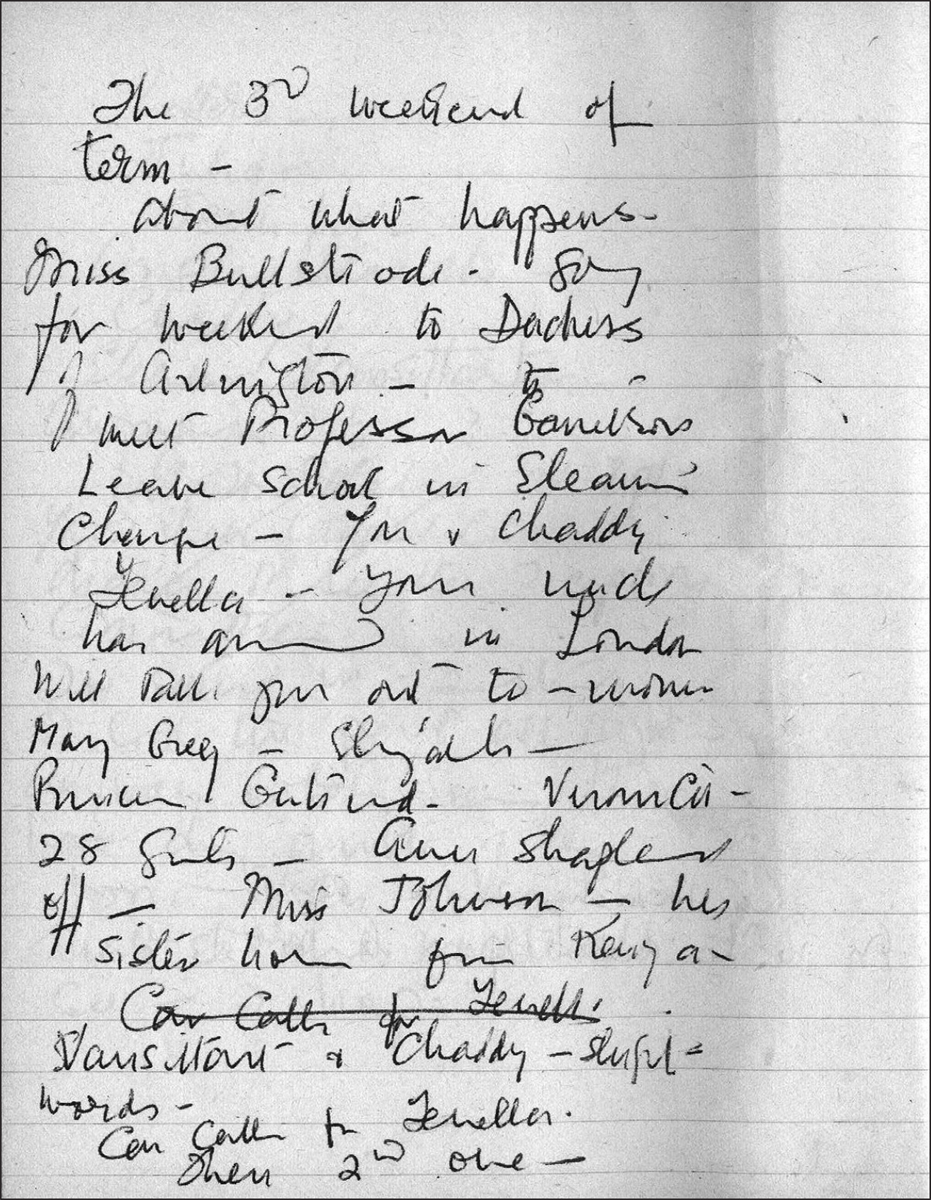 The 3rd weekend of
term –
About what happens –
Miss Bullstrode. Going
for weekend to Duchess
of Arlington – to
meet Professor
Leave School in Eleanor's
Charge – You & Chaddy
Fenella – Your uncle
has arrived in London
Will take you out to –
Mary Grey –
Gertrude – Veronica –
28 Girls – Ann Shapland
off – Miss Johnson – her
sister home from Kenya –
Car Calls for Fenella
Vansittart & Chaddy – slight
words –
Car Calls for Fenella.
Then 2nd one –